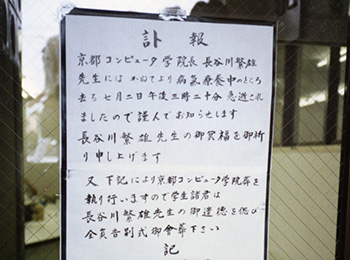 訃報
京都コンピュータ学院長 長谷川繁雄
先生には かねてより病氣療養中のところ
去る七月二日午後三時二十分 急逝され
ましたので謹んでお知らせします
長谷川繁雄先生の御冥福を御祈
り申し上げます
又 下記により京都コンピュータ学院葬を
執り行いますので学生諸君は
長谷川繁雄先生の御遺徳を偲び
全員告別式御會葬下さい
記